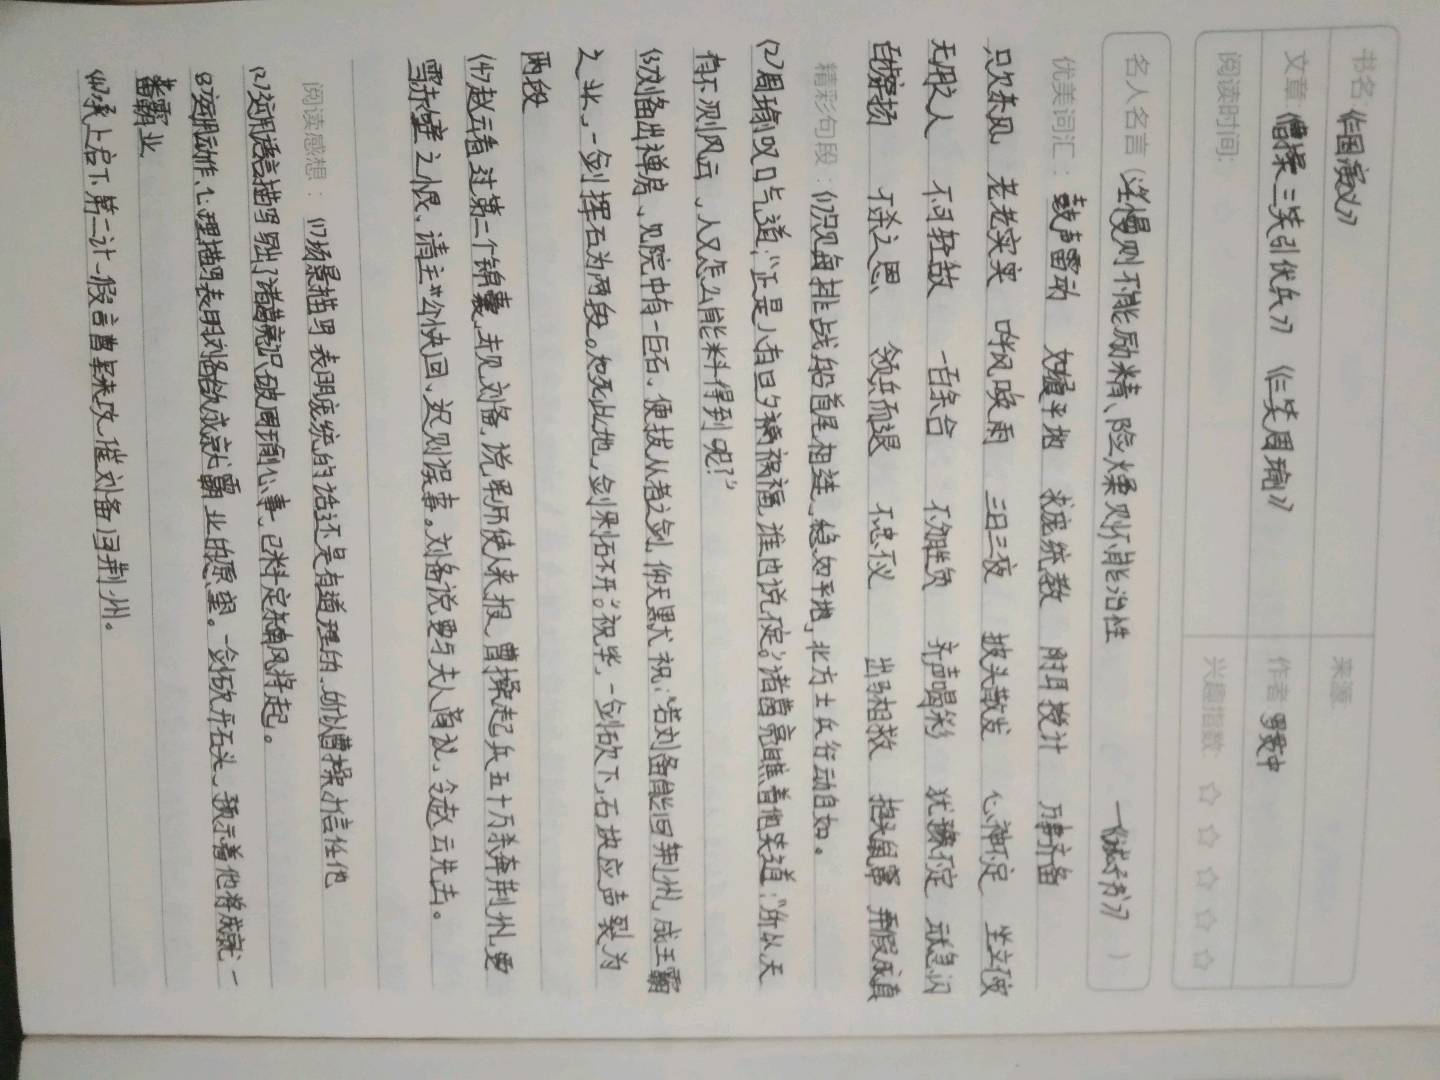 书名:《三国演义》 来源:
文章:《曹操三笑引伏兵》《三笑周瑜》 作者 罗贯中
阅读时间: 兴趣指数: ☆ ☆ ☆ ☆ ☆
名人名言(淫慢则不能励精、险燥则不能治性 —《诫子书》)
优美词汇: 鼓声雷动 如履平地 求庞统教 附耳授计 万事齐备
只欠东风 老老实实 呼风唤雨 三日三夜 披头散发 心神不定 坐立不安
无用之人 不可轻敌 一百余合 不分胜负 齐声喝彩 犹豫不定
不杀之恩 领兵而退 不忠不义 出马相救 抱头鼠窜 弄假成真
精彩句段: (1)只见每排战船首尾相连,稳如平地,北方士兵行动自如。
(2)周瑜叹口气道:“正是人有旦夕祸福,谁也说不定。”诸葛亮瞧着他笑道:“所以天
有不测风云,人又怎么能料得到呢?”
(3)刘备出禅房、见院中有一巨石、便拔从者之剑,仰天默祝:“若刘备能回荆州,成王霸
之业,一剑挥石为两段。如死此地,剑剁石不开。”祝毕,一剑砍下,石块应声裂为
两段
(4)赵云看过第二个锦囊,去见刘备,说军师使人来报,曹操起兵五十万杀奔荆州,要
雪赤壁之恨、请主公快回、迟则误事。刘备说要与夫人商议,令赵云先去。
阅读感想: (1)场景描写表明庞统的话还是有道理的,所以曹操才信任他
(2)运用语言描写写出了诸葛亮识破周瑜心事,已料定东南风将起。
(3)运用动作、心理描写表明刘备欲成就霸业的愿望。一剑砍开石头,预示着他将成就一
番霸业
(4)承上启下,第二计-假言曹军来攻,催刘备回荆州。